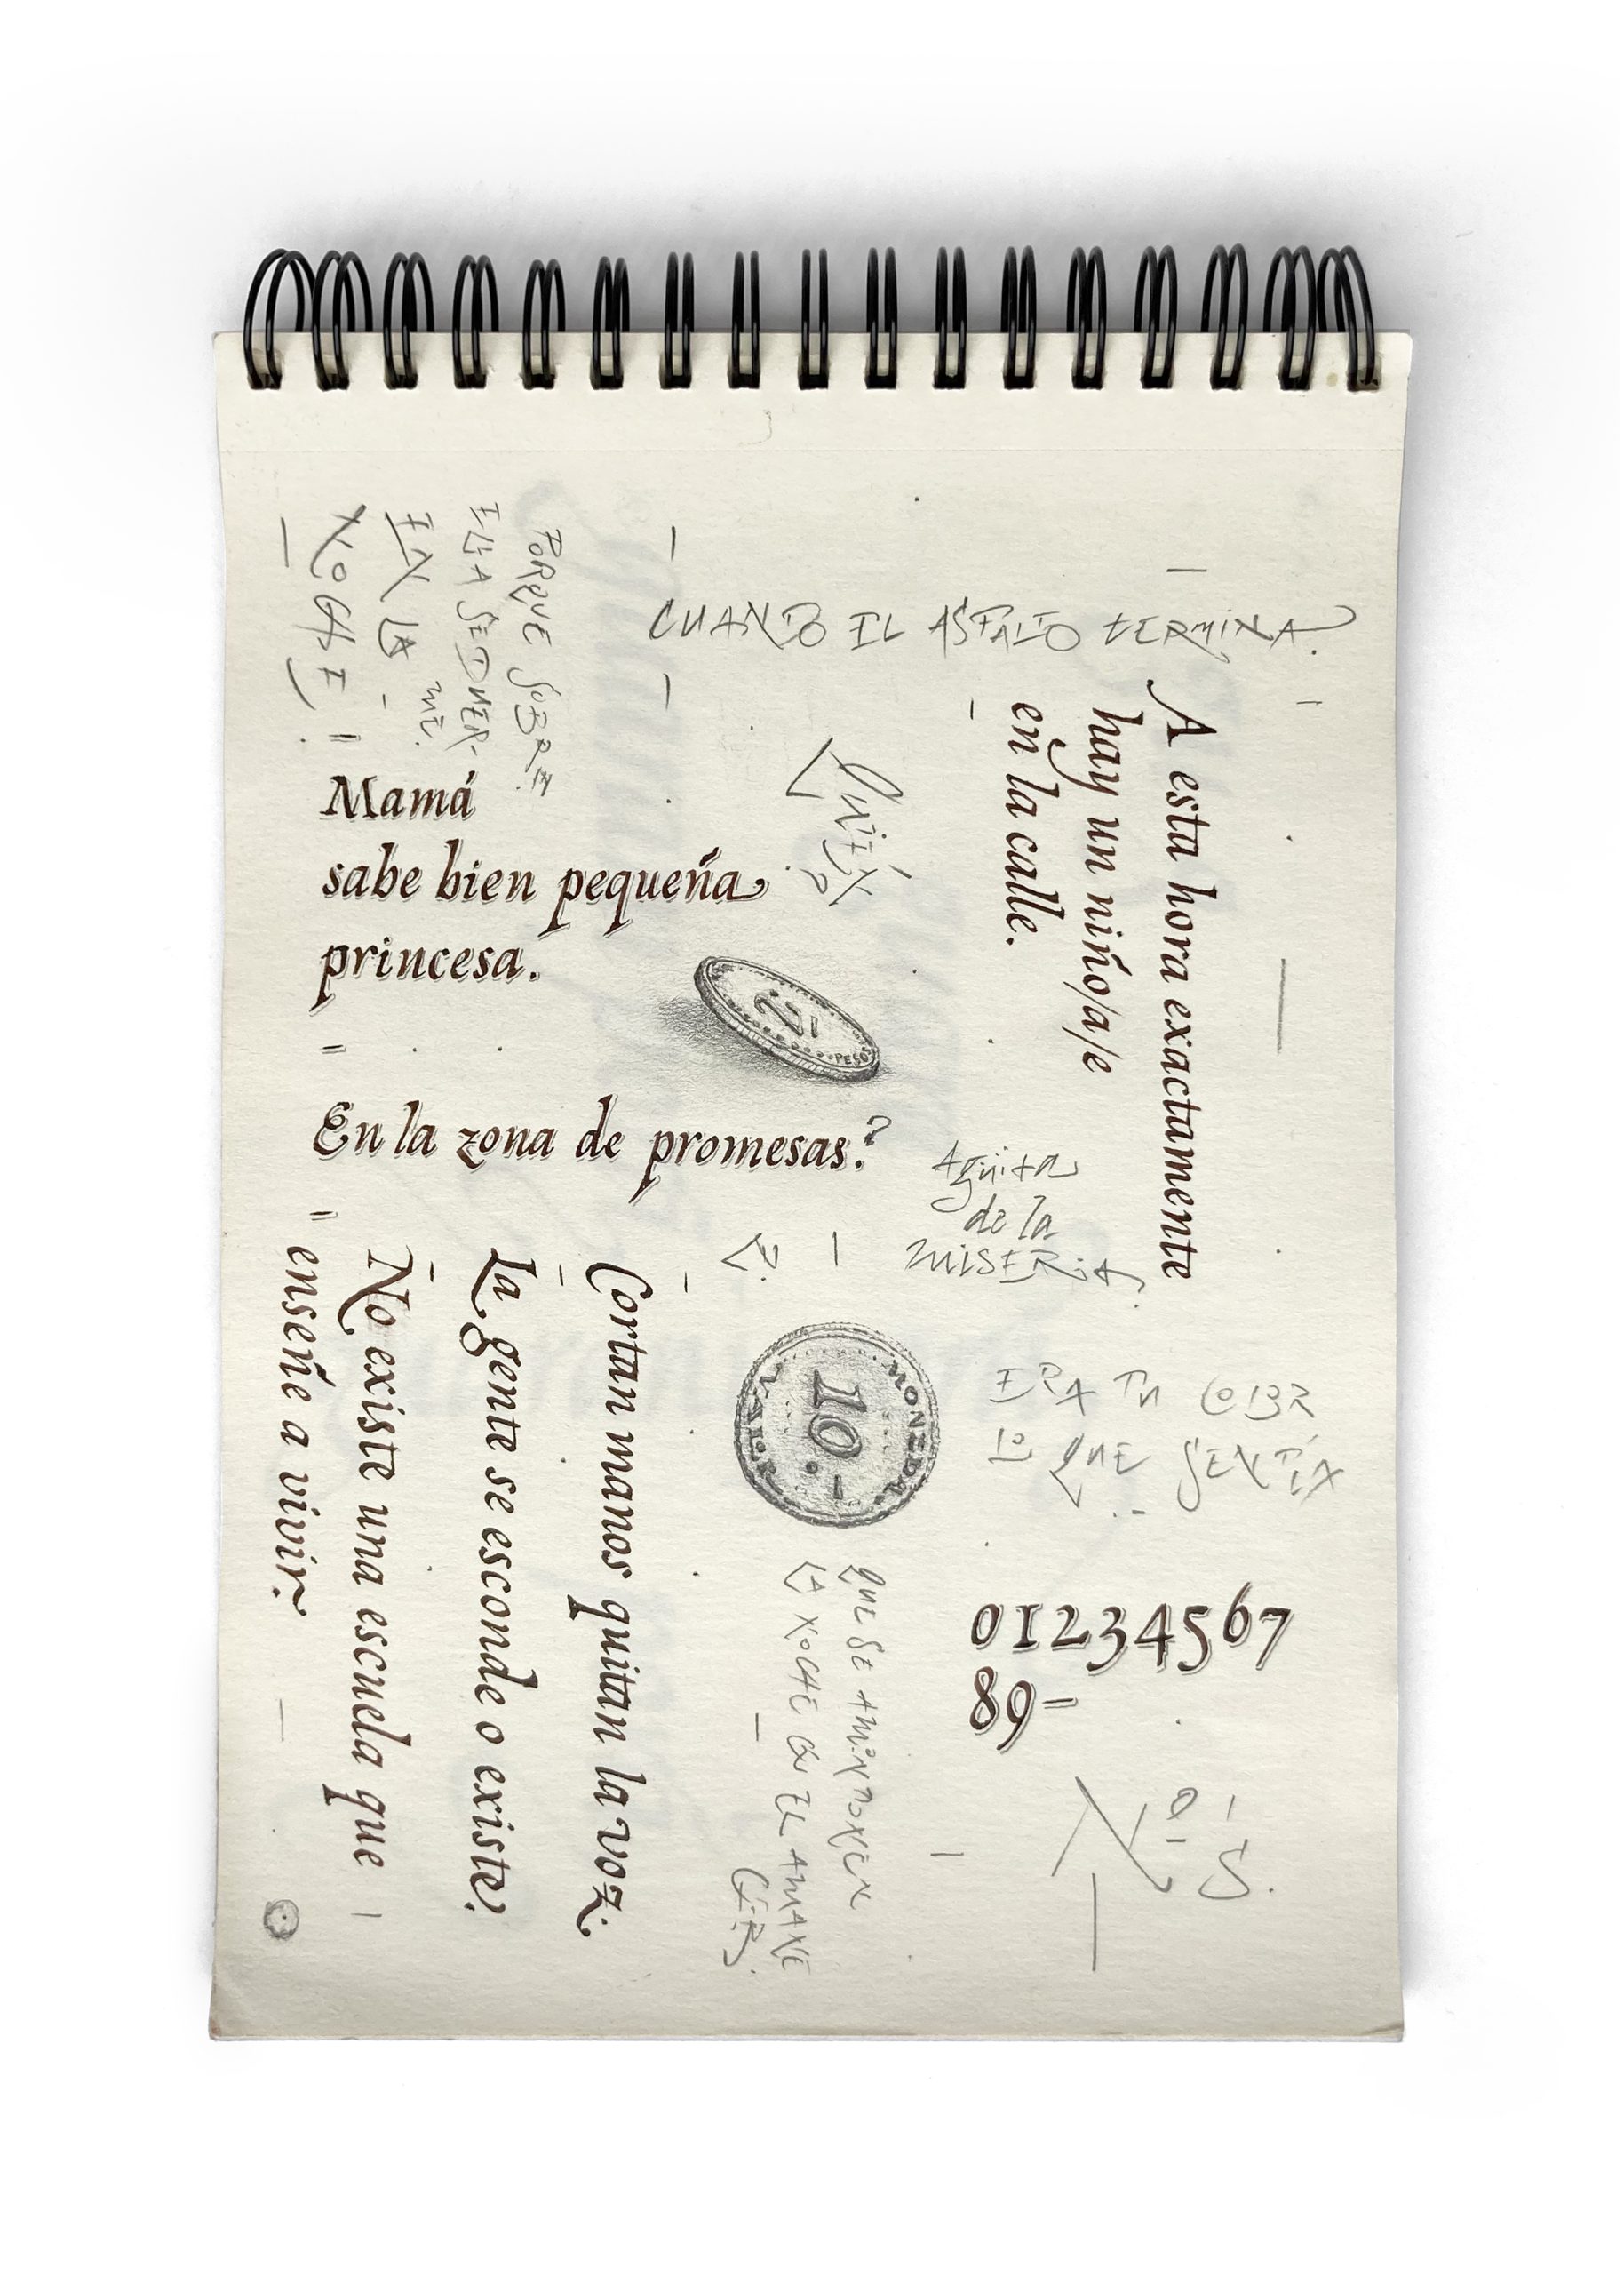 CUANDO EL ASFALTO TERMINA.
PORQUE SOBRE
ELLA SE DUER-
ME.
EN LA
NOCHE.
A esta hora exactamente
hay un niño/a/e
en la calle.
¿QUIÉN?
Mamá
sabe bien pequeña
princesa.
2
PESOS
En la zona de promesas?
Agüita
de la
MISERIA.
Cortan manos quitan la voz.
La gente se esconde o existe?
No existe una escuela que
enseñe a vivir.
MONEDA.
10.-
VALOR
ERA TU COLOR
LO QUE SENTÍA
QUE SE AMONTONEN
LA NOCHE CON EL AMANE
CER.
01234567
89-